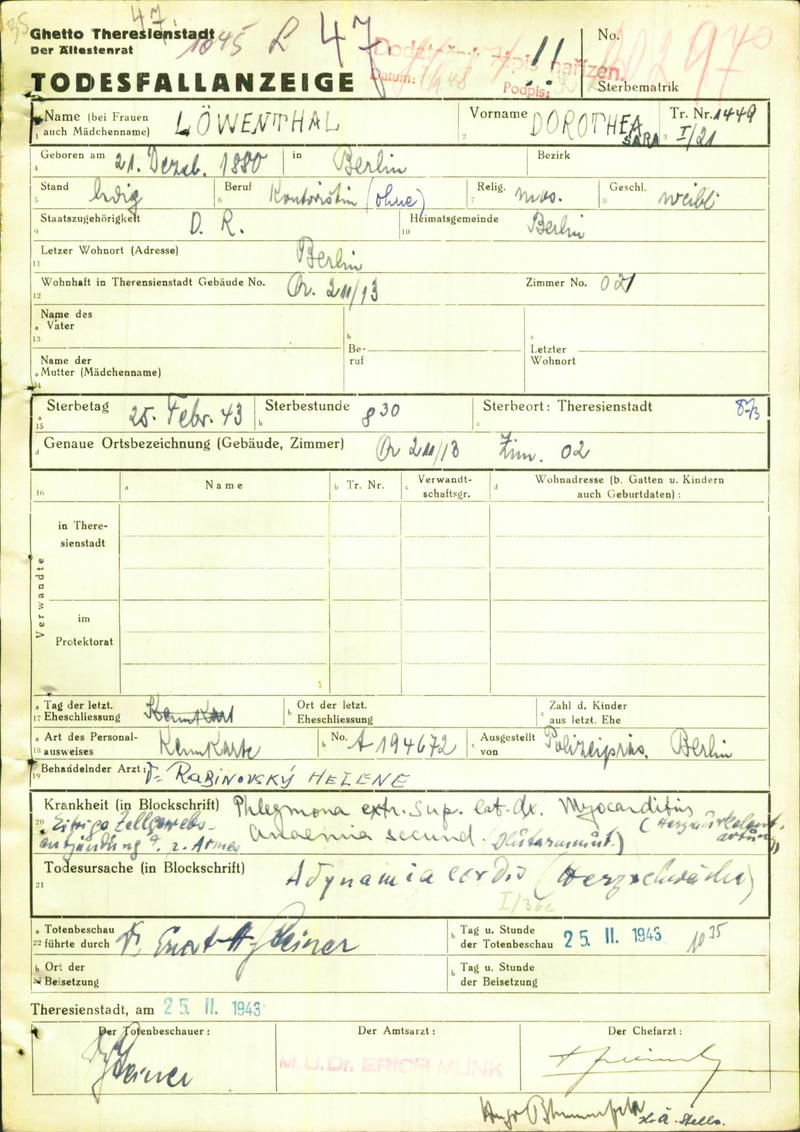 47
Ghetto Theresienstadt
Der Ältestenrat
1045 L 47 !!
Datum: Podpis:
No.
Sterbematrik
TODESFALLANZEIGE
1 Name (bei Frauen auch Mädchenname) LÖWENTHAL 2 Vorname DOROTHEA SARA 3 Tr. Nr. 1449 I/21
4 Geboren am 21. Dezb. 1880 in Berlin Bezirk
5 Stand ledig 6 Beruf Kontoristin (ohne) 7 Relig. mos. 8 Geschl. weibl.
9 Staatszugehörigkeit D. R. 10 Heimatsgemeinde Berlin
11 Letzer Wohnort (Adresse) Berlin
12 Wohnhaft in Theresienstadt Gebäude No. Zimmer No. 021
13 a Name des Vater b Beruf c Letzter Wohnort
14 a Name der Mutter (Mädchenname)
15 a Sterbetag 25. Febr. 43 b Sterbestunde 8 30 c Sterbeort: Theresienstadt
d Genaue Ortsbezeichnung (Gebäude, Zimmer) Zim. 02
16 a Name b Tr. Nr. c Verwandtschaftsgr. d Wohnadresse (b. Gatten u. Kindern auch Geburtdaten) :
Verwandte
in Theresienstadt
im Protektorat
17 a Tag der letzt. Eheschliessung b Ort der letzt. Eheschliessung c Zahl d. Kinder aus letzt. Ehe
18 a Art des Personalausweises Kennkarte b No. A 194672 c Ausgestellt von Polizeipräs. Berlin
19 Behandelnder Arzt: Dr. RABINOVSKÝ HELENE
20 Krankheit (in Blockschrift) Phlegmona extr. sup. lat. dx. Myocarditis
Eitrige Zellgewebsentzündung d. r. Armes Anaemia secund. (Blutarmut.)
21 Todesursache (in Blockschrift) Adynamia cordis (Herzschwäche)
I/36c
22 a Totenbeschau führte durch Dr. b Tag u. Stunde der Totenbeschau 25. II. 1943 10 35
b Ort der Beisetzung b Tag u. Stunde der Beisetzung
Theresienstadt, am 25. II. 1943
Der Totenbeschauer : Der Amtsarzt : Der Chefarzt :
M. U. Dr. ERICH MUNK